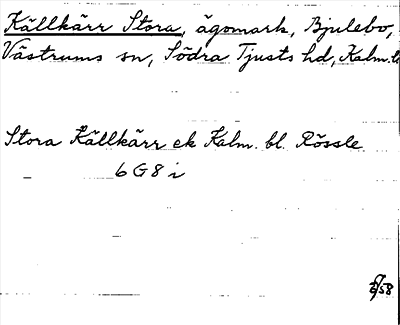 Källkärr Stora, ägomark, Bjulebo,
Västrums sn, Södra Tjusts hd, Kalm.l.
Stora Källkärr ek Kalm. bl. Rössle
6 G 8 i